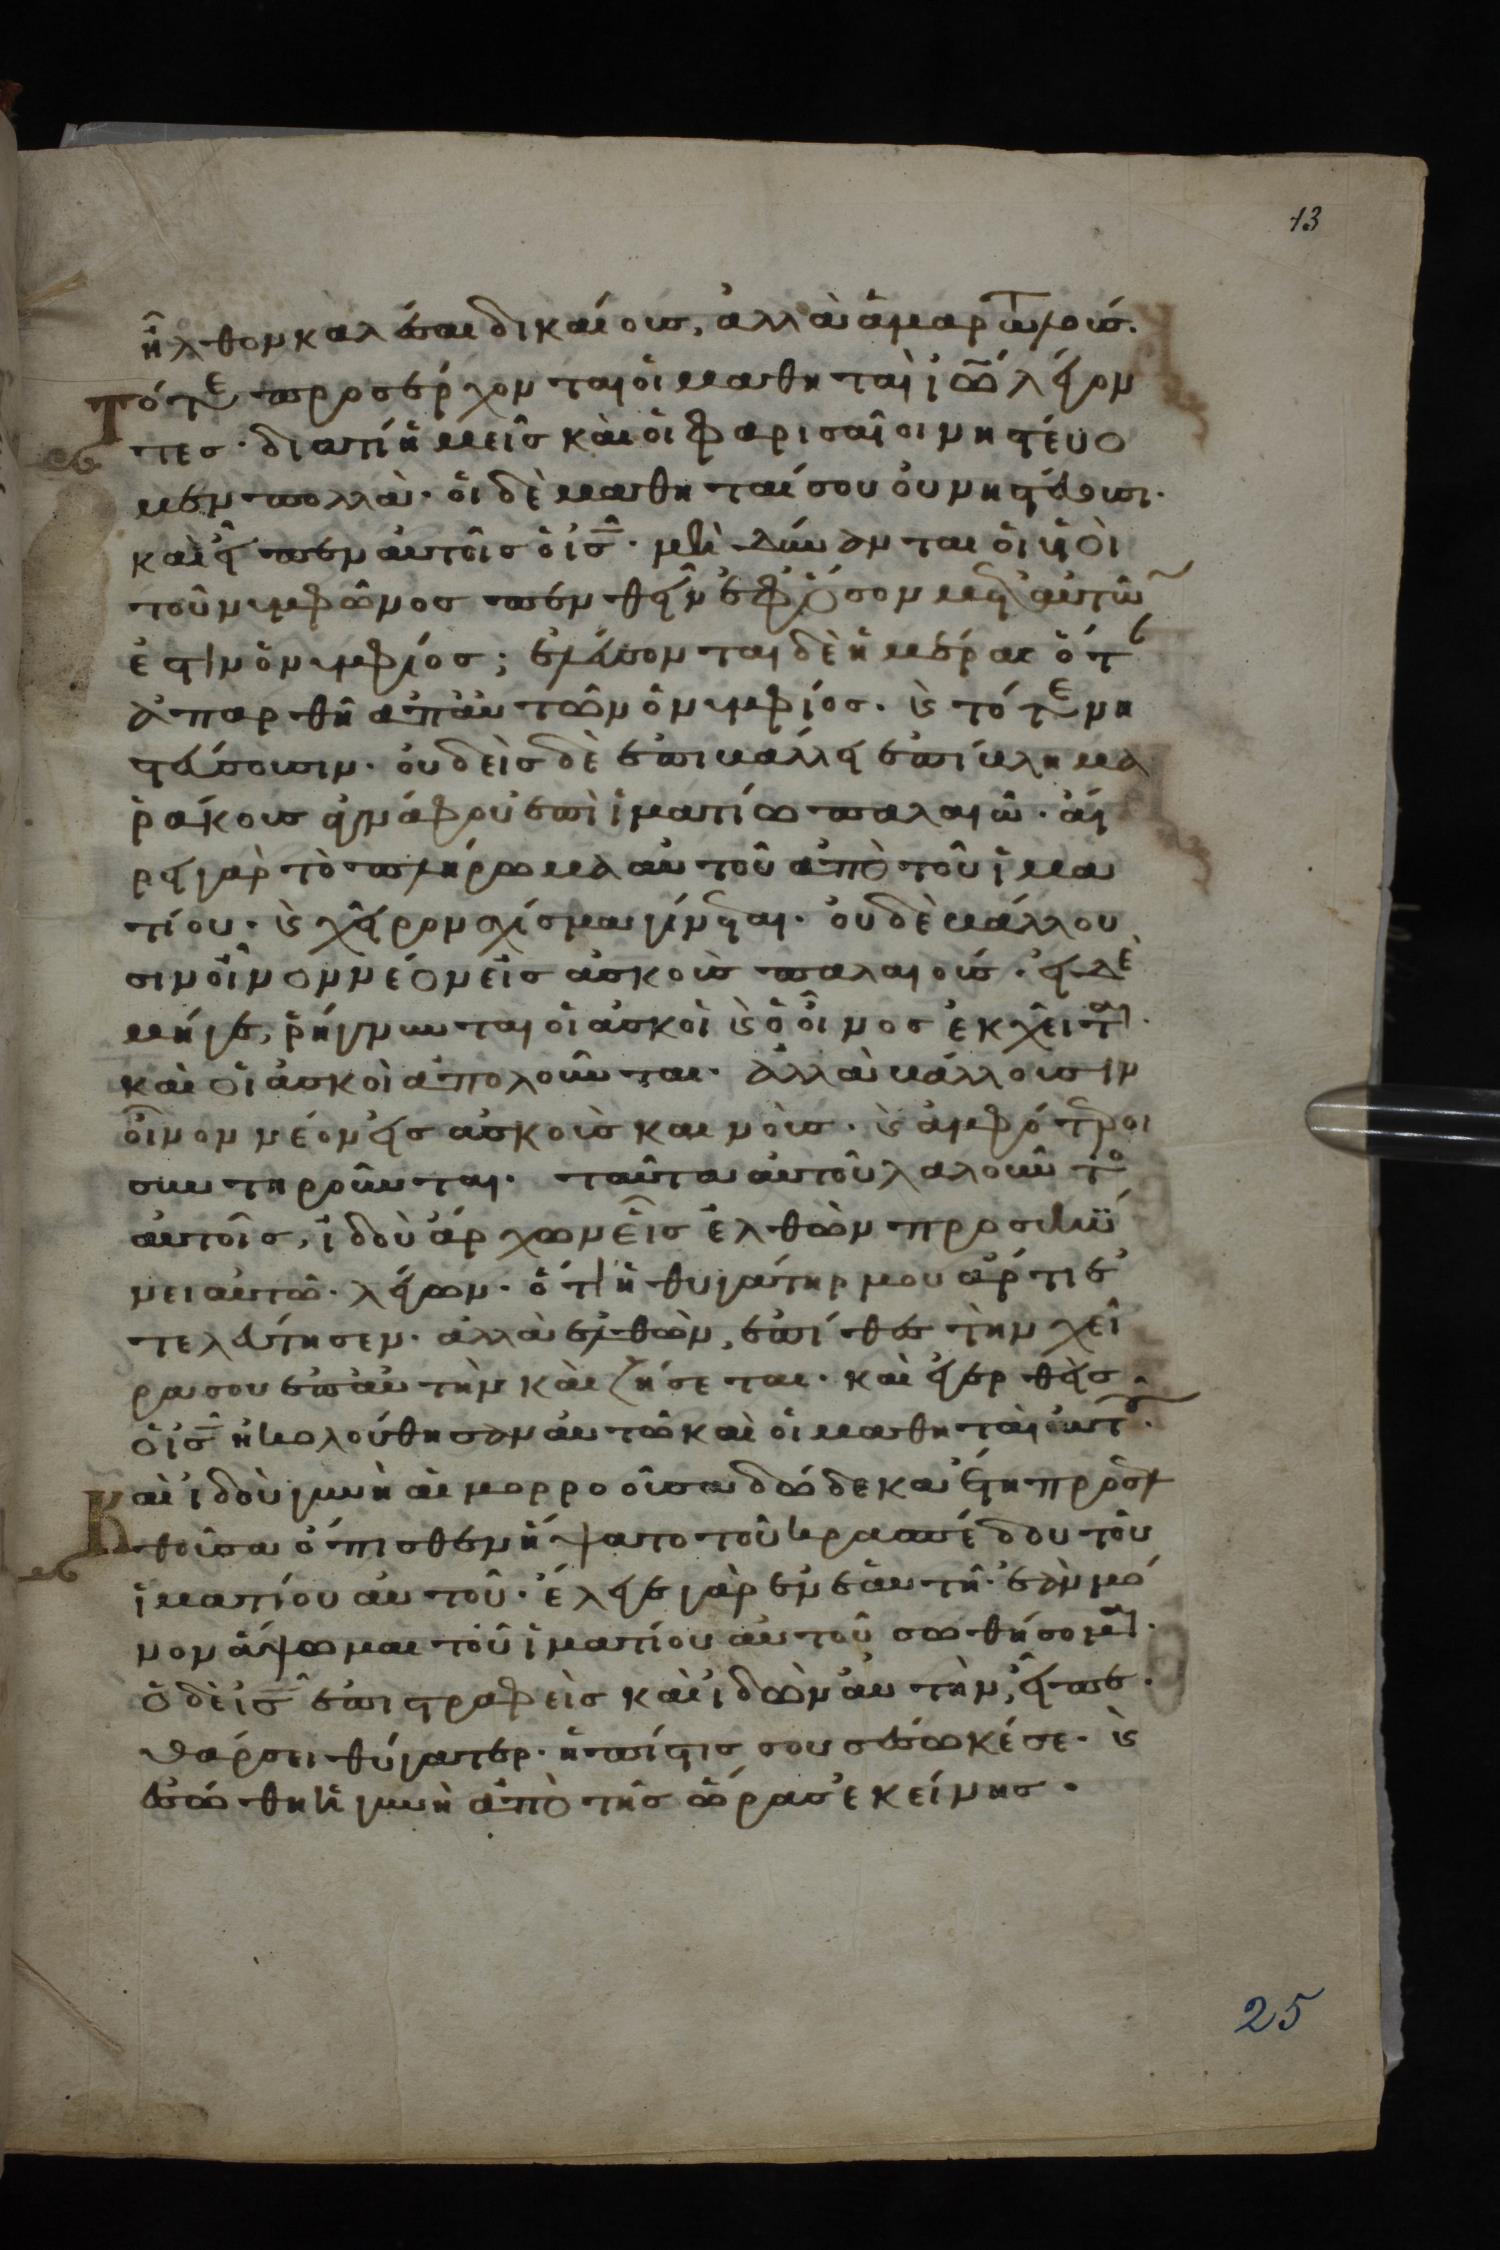 13
ἦλθον καλέσαι δικαίους, ἀλλὰ ἁμαρτωλούς.
Τότε προσέρχονται οἱ μαθηταὶ ἰω λέγον
τες· διατί ἡμεῖς καὶ οἱ φαρισαῖοι νηστεύο
μεν πολλὰ· οἱ δὲ μαθηταί σου οὐ νηστεύουσι·
καὶ εἶπεν αὐτοῖς ὁ ις· μὴ δύνανται οἱ υἱοὶ
τοῦ νυμφῶνος πενθεῖν ἐφ' ὅσον μετ' αὐτῶν
ἐστιν ὁ νυμφίος; ἐλεύσονται δὲ ἡμέραι ὅτ
ἀπαρθῆ ἀπ' αὐτῶν ὁ νυμφίος· καὶ τότε νη
στεύσουσιν· οὐδεὶς δὲ ἐπιβάλλει ἐπίβλημα
ῥάκους ἀγνάφου ἐπὶ ἱματίω παλαιῶ· αἴ
ρει γὰρ τὸ πλήρωμα αὐτοῦ ἀπὸ τοῦ ἱμα
τίου· καὶ χεῖρον σχίσμα γίνεται· οὐδὲ βάλλου
σιν οἶνον νέον εἰς ἀσκοὺς παλαιούς· εἰ δὲ
μήγε, ῥήγνυνται οἱ ἀσκοὶ καὶ ὁ οἶνος ἐκχεῖται·
καὶ οἱ ἀσκοὶ ἀπολοῦνται· ἀλλὰ βάλλουσιν
οἶνον νέον εἰς ἀσκοὺς καινούς· καὶ ἀμφότεροι
συντηροῦνται· ταῦτα αὐτοῦ λαλοῦντο
αὐτοῖς, ἰδοὺ ἄρχων εἷς ἐλθὼν προσεκύ
νει αὐτῶ· λέγων· ὅτι ἡ θυγάτηρ μου ἄρτι ἐ
τελεύτησεν· ἀλλὰ ἐλθὼν, ἐπίθες τὴν χεῖ
ρα σου ἐπ' αὐτὴν καὶ ζήσεται· καὶ ἐγερθεὶς
ὁ ις ἠκολούθησεν αὐτῶ καὶ οἱ μαθηταὶ αὐτοῦ·
Καὶ ἰδοὺ γυνὴ αἱμορροοῦσα δώδεκα ἔτη προσελ
θοῦσα ὄπισθεν ἥψατο τοῦ κρασπέδου τοῦ
ἱματίου αὐτοῦ· ἔλεγε γὰρ ἐν ἑαυτῆ· ἐὰν μό
νον ἅψωμαι τοῦ ἱματίου αὐτοῦ σωθήσομαι·
ὁ δὲ ις ἐπιστραφεὶς καὶ ἰδὼν αὐτὴν, εἶπε·
θάρσει θύγατερ· ἡ πίστις σου σέσωκέ σε· καὶ
ἐσώθη ἡ γυνὴ ἀπὸ τῆς ὥρας ἐκείνης·
25